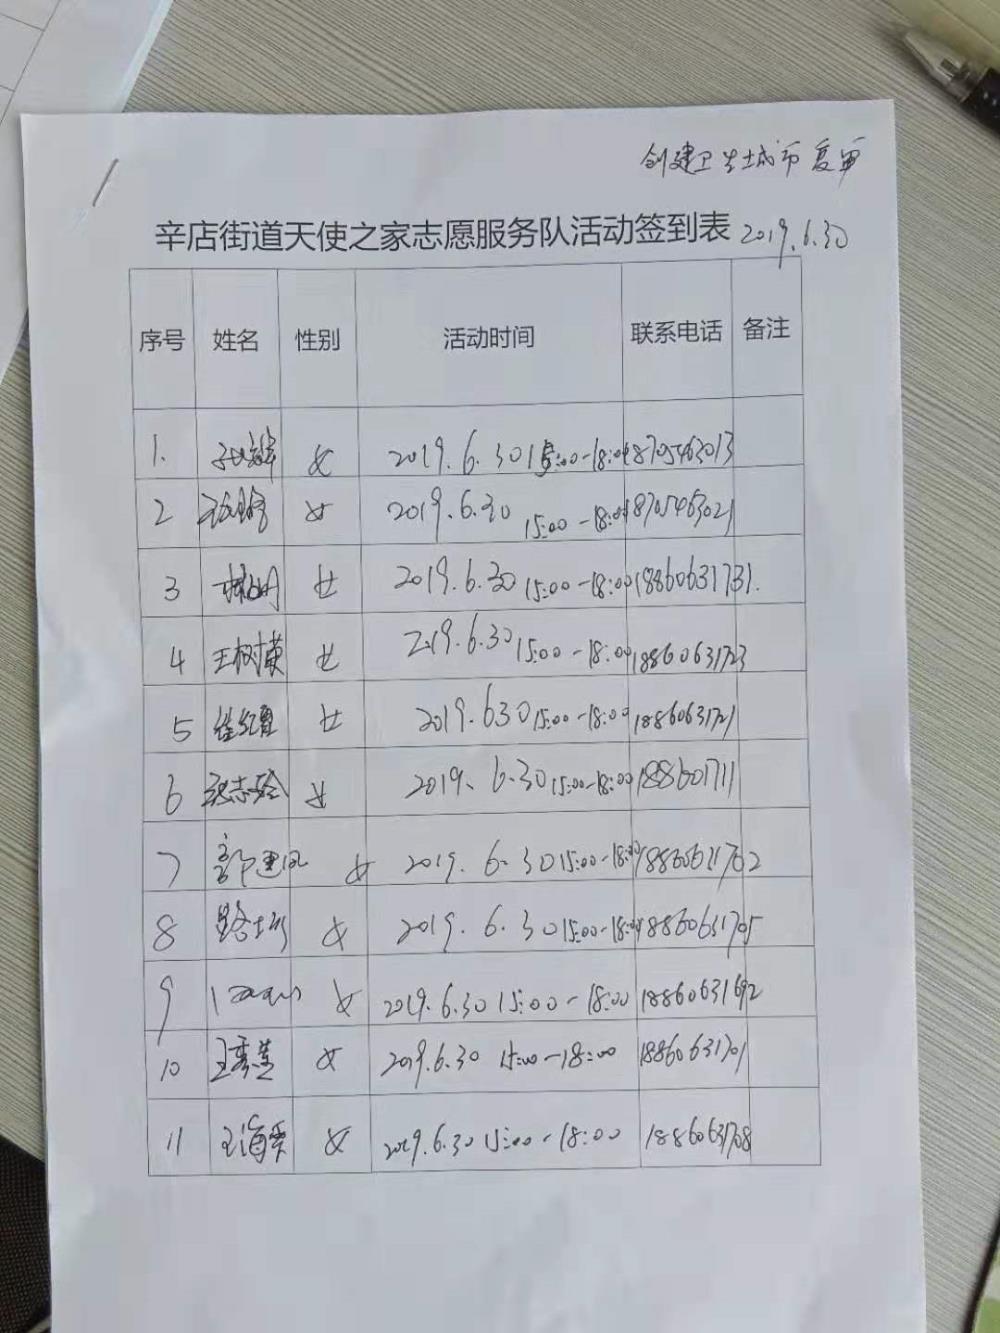 创建卫生城市复审
辛店街道天使之家志愿服务队活动签到表 2019.6.30
序号 姓名 性别 活动时间 联系电话 备注
1. 女 2019.6.30 15:00-18:00 18705463013
2 女 2019.6.30 15:00-18:00 18705463021
3 女 2019.6.30 15:00-18:00 18860631731.
4 王树英 女 2019.6.30 15:00-18:00 18860631723
5 女 2019.630 15:00-18:00 18860631721
6 女 2019.6.30 15:00-18:00 188601711
7 郭建凤 女 2019.6.30 15:00-18:00
8 女 2019.6.30 15:00-18:00 18860631705
9 女 2019.6.30 15:00-18:00 18860631692
10 王秀兰 女 2019.6.30 15:00-18:00 18860631701
11 女 2019.6.30 15:00-18:00 18860631708